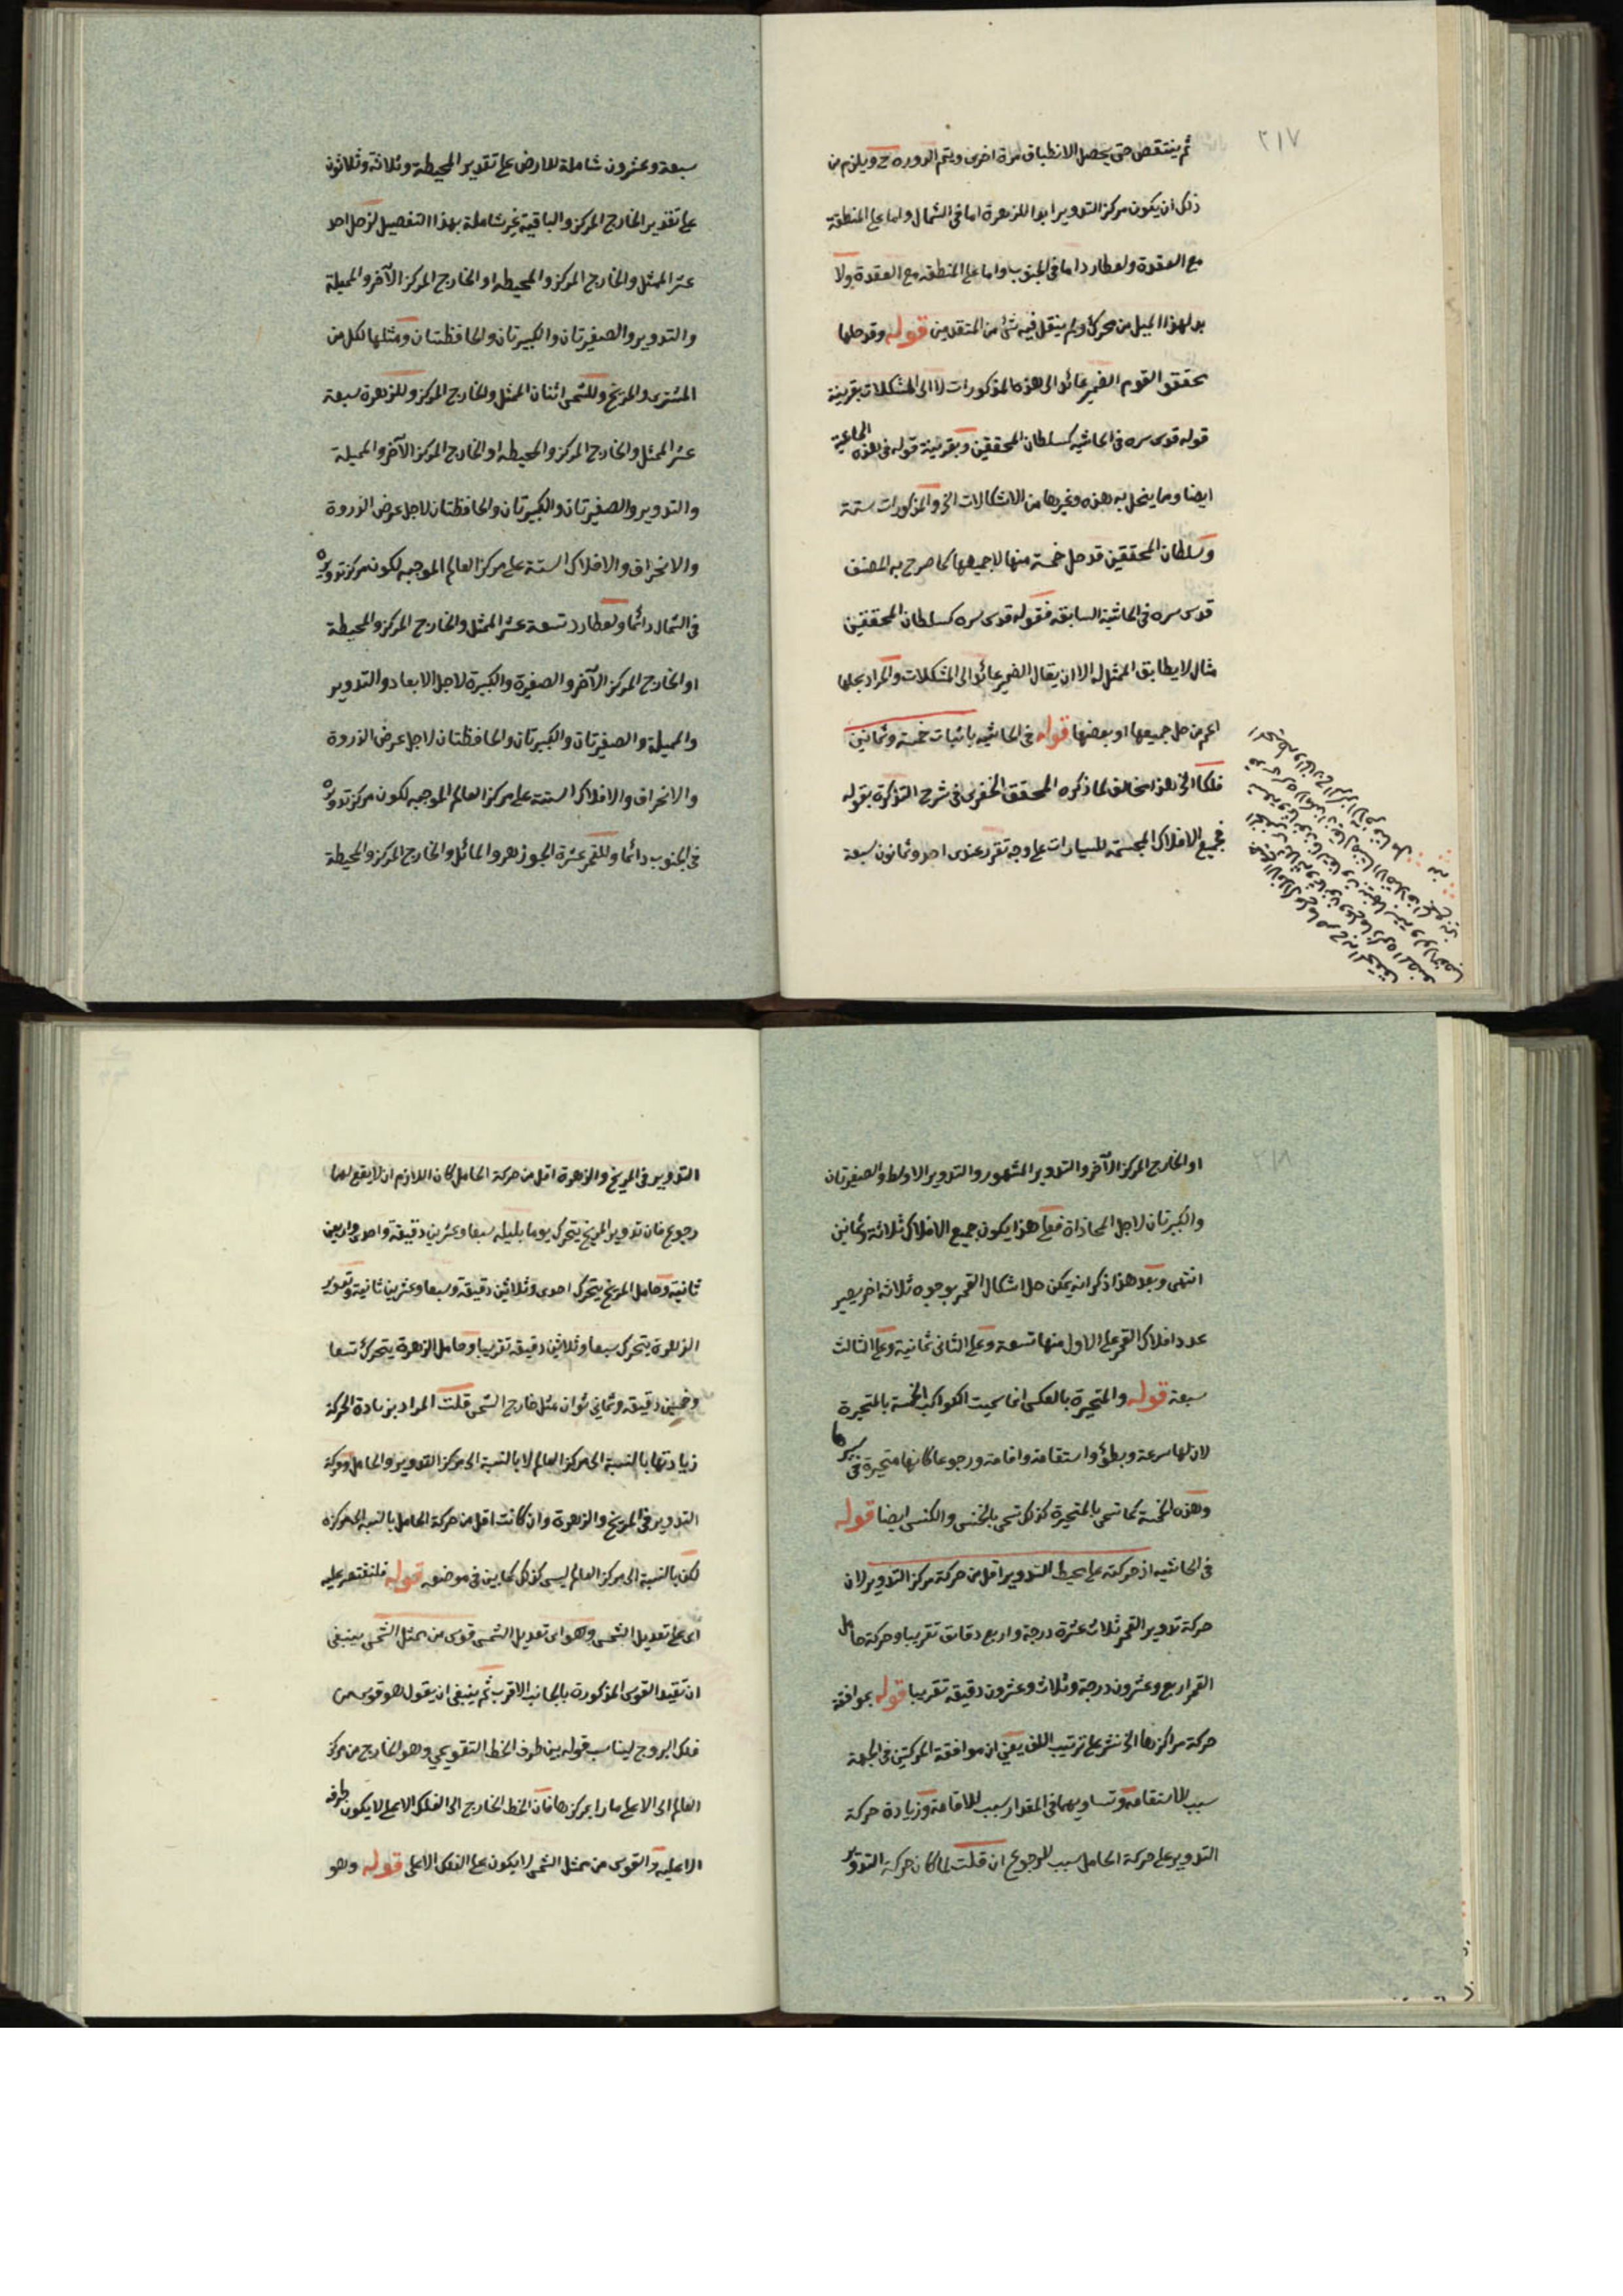 ٢١٧
ثم ينتقص حتى يحصل الانطباق مرة اخرى ويتم الدوره ح ويلزم من
ذلك ان يكون مركز التدوير ابدا للزهرة اما فى الشمال واما على المنطقة
مع العقدة ولعطارد اما فى الجنوب واما على المنطقه مع العقدة ولا
بد لهذا الميل من محرك ولم ينقل فيه شئ من المتقدمين قوله وقد حلها
محققو القوم الضمير عائد الى هذه المذكورات لا الى المشكلات بقرينة
قوله قدس سره فى الحاشيه كسلطان المحققين وبقرينة قوله فى هذه الحاشية
ايضا وما ينحل به هذه وغيرها من الاشكالات الخ والمذكورات ستة
وسلطان المحققين قد حل خمسة منها لا جميعها كما صرح به المصنف
قدس سره فى الحاشية السابقه فقوله قدس سره كسلطان المحققين
مثال لا يطابق الممثل له الا ان يقال الضمير عائد الى المشكلات والمراد بحلها
اعم من حل جميعها او بعضها قوله فى الحاشيه باثبات خمسة وثمانين
فلكا الخ هذا مخالف لما ذكره المحقق الخفرى فى شرح التذكرة بقوله
فجميع الافلاك المجسمة للسيارات على وجه تقرر عندى احد وثمانون سبعة
سبعة وعشرون شاملة للارض على تقدير المحيطة وثلاثة وثلاثون
على تقدير الخارج المركز والباقية غير شاملة بهذا التفصيل لزحل احد
عشر الممثل والخارج المركز والمحيطه او الخارج المركز الآخر والمميلة
والتدوير والصغيرتان والكبيرتان والحافظتان ومثلها لكل من
المشترى والمريخ وللشمس اثنان الممثل والخارج المركز وللزهرة سبعة
عشر الممثل والخارج المركز والمحيطه او الخارج المركز الآخر والمميلة
والتدوير والصغيرتان والكبيرتان والحافظتان لاجل عرض الذروة
والانحراف والافلاك الستة على مركز العالم الموجبه لكون مركز تدويره
فى الشمال دائما ولعطارد تسعة عشر الممثل والخارج المركز والمحيطة
او الخارج المركز الآخر والصغيرة والكبيرة لاجل الابعاد والتدوير
والمميلة والصغيرتان والكبيرتان والحافظتان لاجل عرض الذروة
والانحراف والافلاك الستة على مركز العالم الموجبه لكون مركز تدويره
فى الجنوب دائما وللقمر عشرة الجوزهر والمائل والخارج المركز والمحيطة
٢١٨
او الخارج المركز الآخر والتدوير المشهور والتدوير الاوسط والصغيرتان
والكبيرتان لاجل المحاذاة فعلى هذا يكون جميع الافلاك ثلاثة وثمانين
انتهى وبعد هذا ذكر انه يمكن حل اشكال القمر بوجوه ثلاثه اخر يصير
عدد افلاك القمر على الاول منها تسعة وعلى الثانى ثمانية وعلى الثالث
سبعة قوله والمتحيرة بالعكس انما سميت الكواكب الخمسة بالمتحيرة
لان لها سرعة وبطؤ واستقامة واقامة ورجوعا كانها متحيرة فى سيرها
وهذه الخمسة كما تسمى بالمتحيرة كذلك تسمى بالخنس والكنس ايضا قوله
فى الحاشيه اذ حركته على محيط التدوير اقل من حركة مركز التدوير لان
حركة تدوير القمر ثلاث عشرة درجة واربع دقائق تقريبا وحركة حامل
القمر اربع وعشرون درجة وثلاث وعشرون دقيقة تقريبا قوله بموافقة
حركة مراكزها الخ نشر على ترتيب اللف يعنى ان موافقة الحركتين فى الجهة
سبب للاستقامة وتساويهما فى المقدار سبب للاقامة وزيادة حركة
التدوير على حركة الحامل سبب للرجوع ان قلت لما كان حركة التدوير
التدوير فى المريخ والزهرة اقل من حركة الحامل كان اللازم ان لا يقع لهما
رجوع فان تدوير المريخ يتحرك يوما بليله سبعا وعشرين دقيقة واحدى واربعين
ثانية وحامل المريخ يتحرك احدى وثلاثين دقيقة وسبعا وعشرين ثانية وتدوير
الزهرة يتحرك سبعا وثلاثين دقيقة تقريبا وحامل الزهرة يتحرك تسعا
وخمسين دقيقة وثمانى ثوان مثل خارج الشمس قلت المراد بزيادة الحركة
زيادتها بالنسبة الى مركز العالم لا بالنسبة الى مركز التدوير والحامل وحركة
التدوير فى المريخ والزهرة وان كانت اقل من حركة الحامل بالنسبه الى مركزه
لكن بالنسبة الى مركز العالم ليس كذلك كما بين فى موضعه قوله فلنقتصر عليه
اى على تعديل الشمس وهو اى تعديل الشمس قوس من ممثل الشمس ينبغى
ان تقيد القوس المذكورة بالجانب الاقرب ثم ينبغى ان يقول هو قوس من
فلك البروج ليناسب قوله بين طرف الخط التقويمى وهو الخارج من مركز
العالم الى الاعلى مارا بمركزها فان الخط الخارج الى الفلك الاعلى لا يكون طرفه
الا عليه والقوس من ممثل الشمس لا يكون على الفلك الاعلى قوله وهو